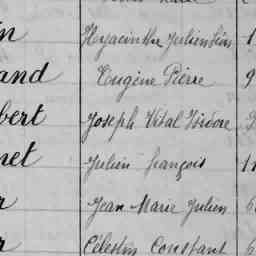 in Hyacinthe Julien
and Eugène Pierre 9
bert Joseph Vital Isidore
net Julien françois 11
r Jean Marie Julien 6
r Célestin Constant 6